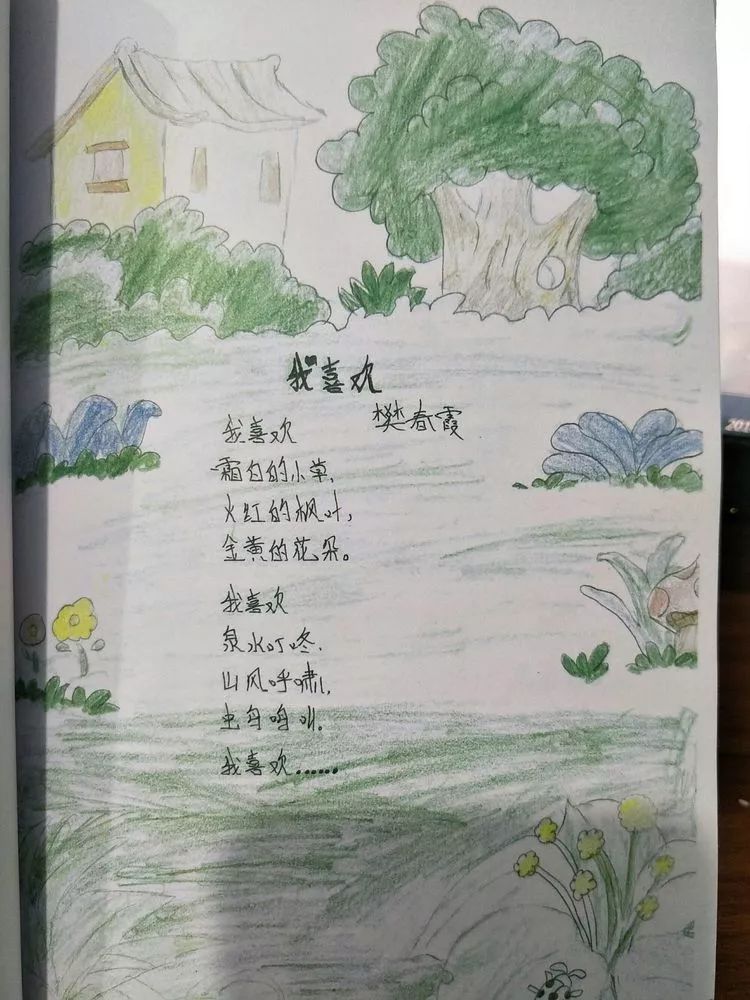 我喜欢
樊春霞
我喜欢
霜白的小草,
火红的枫叶,
金黄的花朵。
我喜欢
泉水叮咚,
山风呼啸,
虫鸟鸣叫。
我喜欢……
201